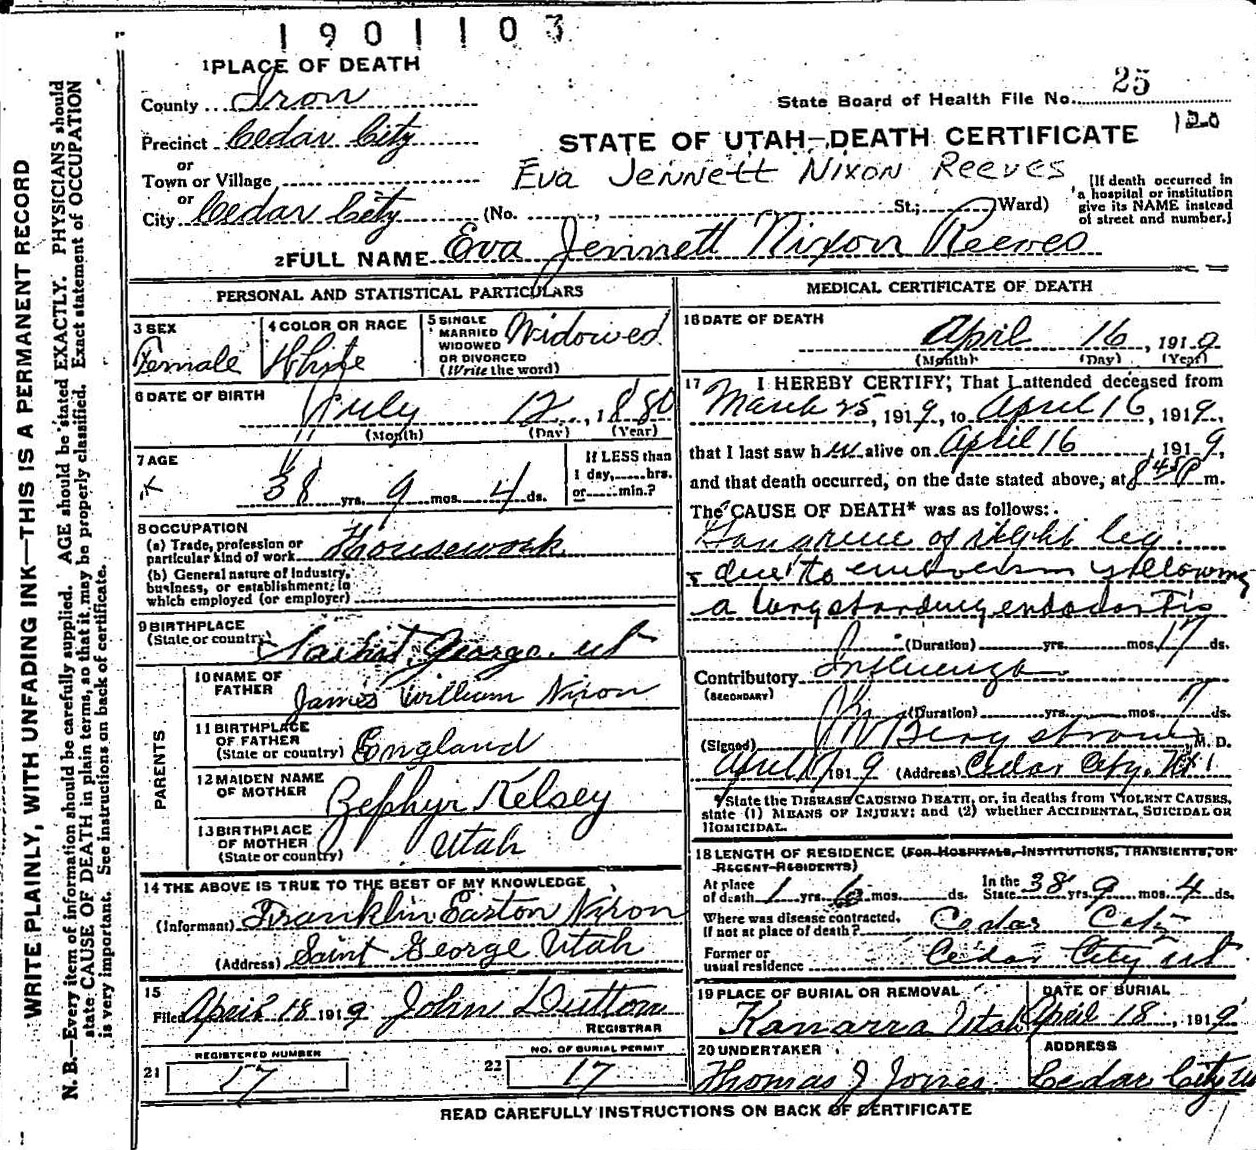 1901103
WRITE PLAINLY, WITH UNFADING INK—THIS IS A PERMANENT RECORD
N. B.—Every item of information should be carefully supplied. AGE should be stated EXACTLY. PHYSICIANS should
state CAUSE OF DEATH in plain terms, so that it may be properly classified. Exact statement of OCCUPATION
is very important. See instructions on back of certificate.
1 PLACE OF DEATH
County Iron
State Board of Health File No. 25
Precinct Cedar City
STATE OF UTAH—DEATH CERTIFICATE 120
or
Town or Village
Eva Jennett Nixon Reeves
or
City Cedar City (No. , St.; Ward)
[If death occurred in
a hospital or institution
give its NAME instead
of street and number.]
2 FULL NAME Eva Jennett Nixon Reeves
PERSONAL AND STATISTICAL PARTICULARS
3 SEX Female
4 COLOR OR RACE White
5 SINGLE
MARRIED
WIDOWED
OR DIVORCED
(Write the word) Widowed
6 DATE OF BIRTH
July 12, 1880
(Month) (Day) (Year)
7 AGE
38 yrs. 9 mos. 4 ds.
If LESS than
1 day, hrs.
or min.?
8 OCCUPATION
(a) Trade, profession or
particular kind of work Housework
(b) General nature of industry,
business, or establishment in
which employed (or employer)
9 BIRTHPLACE
(State or country) Saint George, Ut
PARENTS
10 NAME OF
FATHER James William Nixon
11 BIRTHPLACE
OF FATHER
(State or country) England
12 MAIDEN NAME
OF MOTHER Zephyr Kelsey
13 BIRTHPLACE
OF MOTHER
(State or country) Utah
14 THE ABOVE IS TRUE TO THE BEST OF MY KNOWLEDGE
(Informant) Franklin Easton Nixon
(Address) Saint George Utah
15
Filed April 18 1919 John Dutton
REGISTRAR
REGISTERED NUMBER
21 17
NO. OF BURIAL PERMIT
22 17
MEDICAL CERTIFICATE OF DEATH
16 DATE OF DEATH
April 16, 1919
(Month) (Day) (Year)
17 I HEREBY CERTIFY, That I attended deceased from
March 25, 1919, to April 16, 1919,
that I last saw her alive on April 16, 1919,
and that death occurred, on the date stated above, at 8 45 P m.
The CAUSE OF DEATH* was as follows:
Gangrene of right leg
due to embolism following
a long standing endocarditis
(Duration) yrs. mos. 17 ds.
Contributory Influenza
(SECONDARY)
(Duration) yrs. mos. ds.
(Signed) M. D.
April 17 1919 (Address) Cedar City,
*State the DISEASE CAUSING DEATH, or, in deaths from VIOLENT CAUSES,
state (1) MEANS OF INJURY; and (2) whether ACCIDENTAL, SUICIDAL OR
HOMICIDAL.
18 LENGTH OF RESIDENCE (FOR HOSPITALS, INSTITUTIONS, TRANSIENTS, OR
RECENT RESIDENTS)
At place
of death 1 yrs. 6 mos. ds. In the
State 38 yrs. 9 mos. 4 ds.
Where was disease contracted,
If not at place of death? Cedar City
Former or
usual residence Cedar City Ut
19 PLACE OF BURIAL OR REMOVAL
Kanarra Utah
DATE OF BURIAL
April 18, 1919
20 UNDERTAKER
Thomas J Jones
ADDRESS
Cedar City U
READ CAREFULLY INSTRUCTIONS ON BACK OF CERTIFICATE